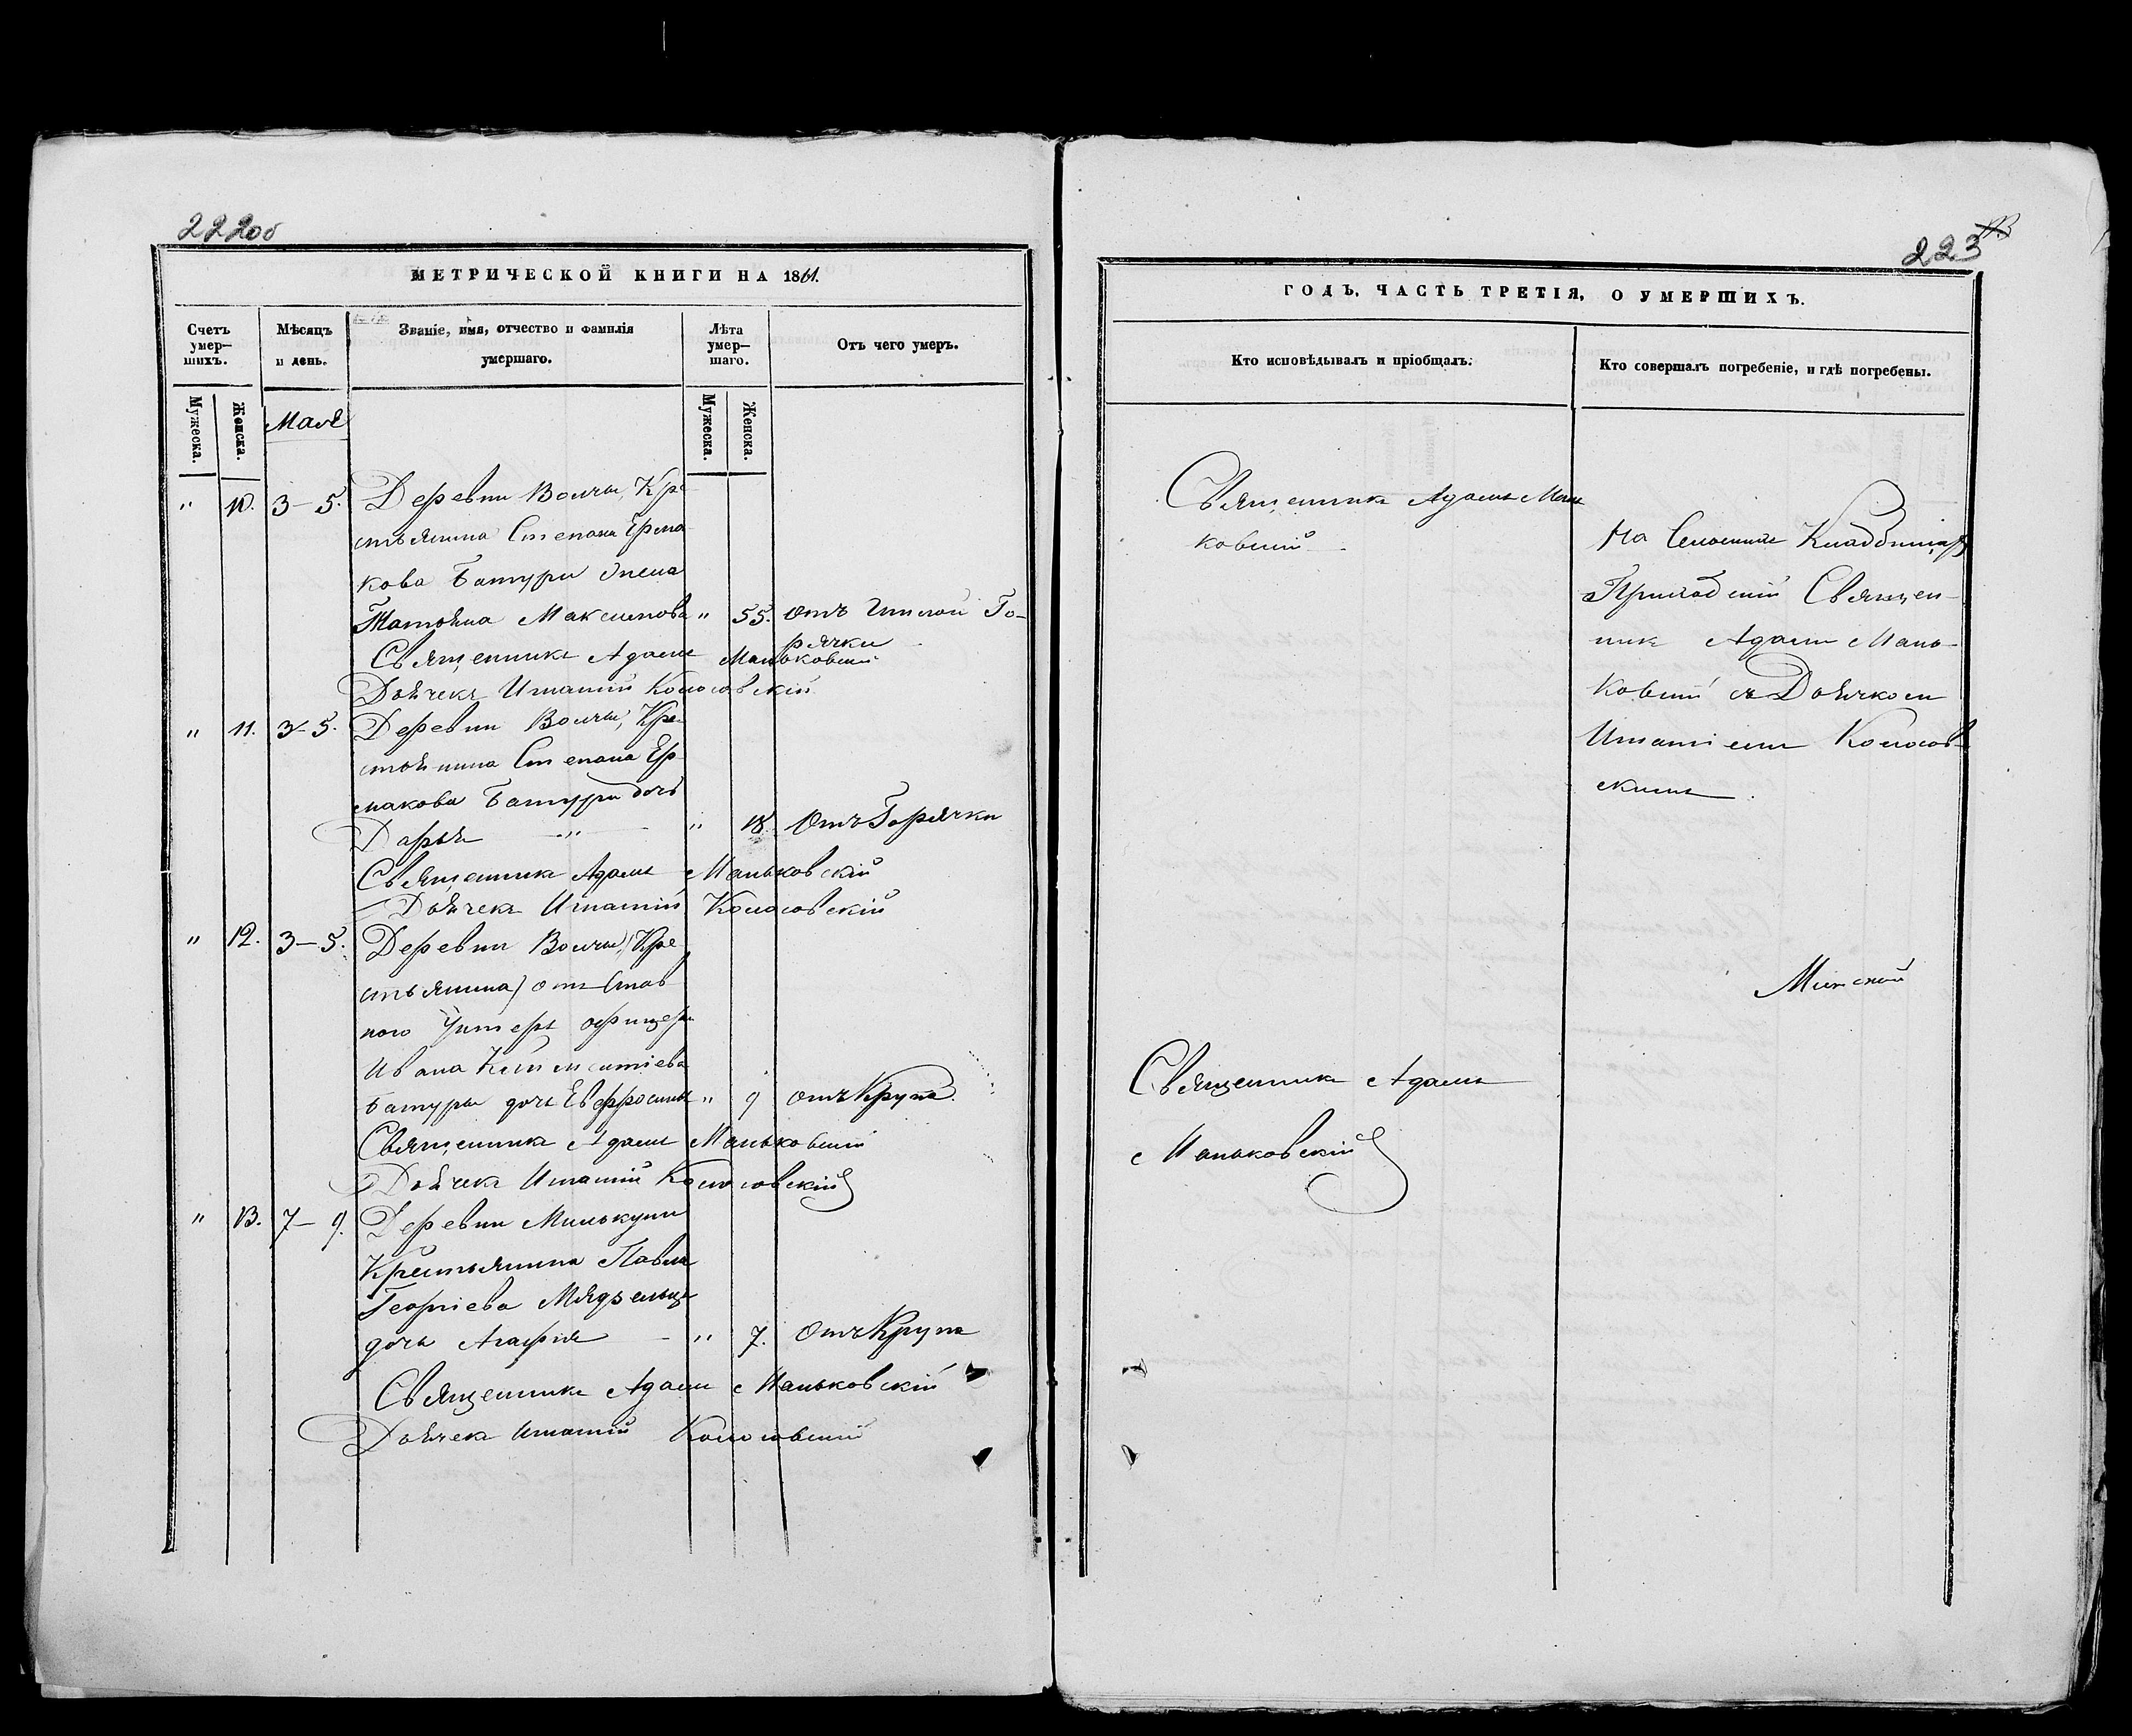 222об
МЕТРИЧЕСКОЙ КНИГИ НА 1861.
Счетъ умер—шихъ.
Мѣсяцъ и день.
Званіе, имя, отчество и фамилія умершаго.
Лѣта умер—шаго.
Отъ чего умеръ.
Мужеска.
Женска.
Маія
Мужеска.
Женска.
" 10. 3–5. Деревни Волчи, Кре
стьянина Степана Ерма
кова Батури жена
Татьяна Максимова " 55. отъ Гнилой Го-
рячки
Священникъ Адамъ Маньковскій
Дьячекъ Игнатій Колосовскій
" 11. 3–5. Деревни Волчи, Кре
стьянина Степана Ер
макова Батури дочь
Дарья " " 18. Отъ Горячки
Священникъ Адамъ Маньковскій
Дьячекъ Игнатій Колосовскій
" 12. 3–5. Деревни Волчи, Кре
стьянина) отстав
ного Унтеръ офицера
Ивана
Батуры дочь Евфросинья " 9 отъ Крупа.
Священникъ Адамъ Маньковскій
Дьячекъ Игнатій Колосовскій
" 13. 7–9. Деревни Милькуни
Крестьянина Павла
Георгіева Мядзельца
дочь Агафія – " 7. Отъ Крупа
Священникъ Адамъ Маньковскій
Дьячекъ Игнатій Колосовскій
223
ГОДЪ, ЧАСТЬ ТРЕТІЯ, О УМЕРШИХЪ.
Кто исповѣдывалъ и пріобщалъ.
Кто совершалъ погребеніе, и гдѣ погребены.
Священникъ Адамъ Мань
ковскій
На Кладбищахъ
Приходскій Священ–
никъ Адамъ Мань–
ковскій съ Дьячкомъ
Игнатіемъ Колосов–
скимъ
Минскій
Священникъ Адамъ
Маньковскій